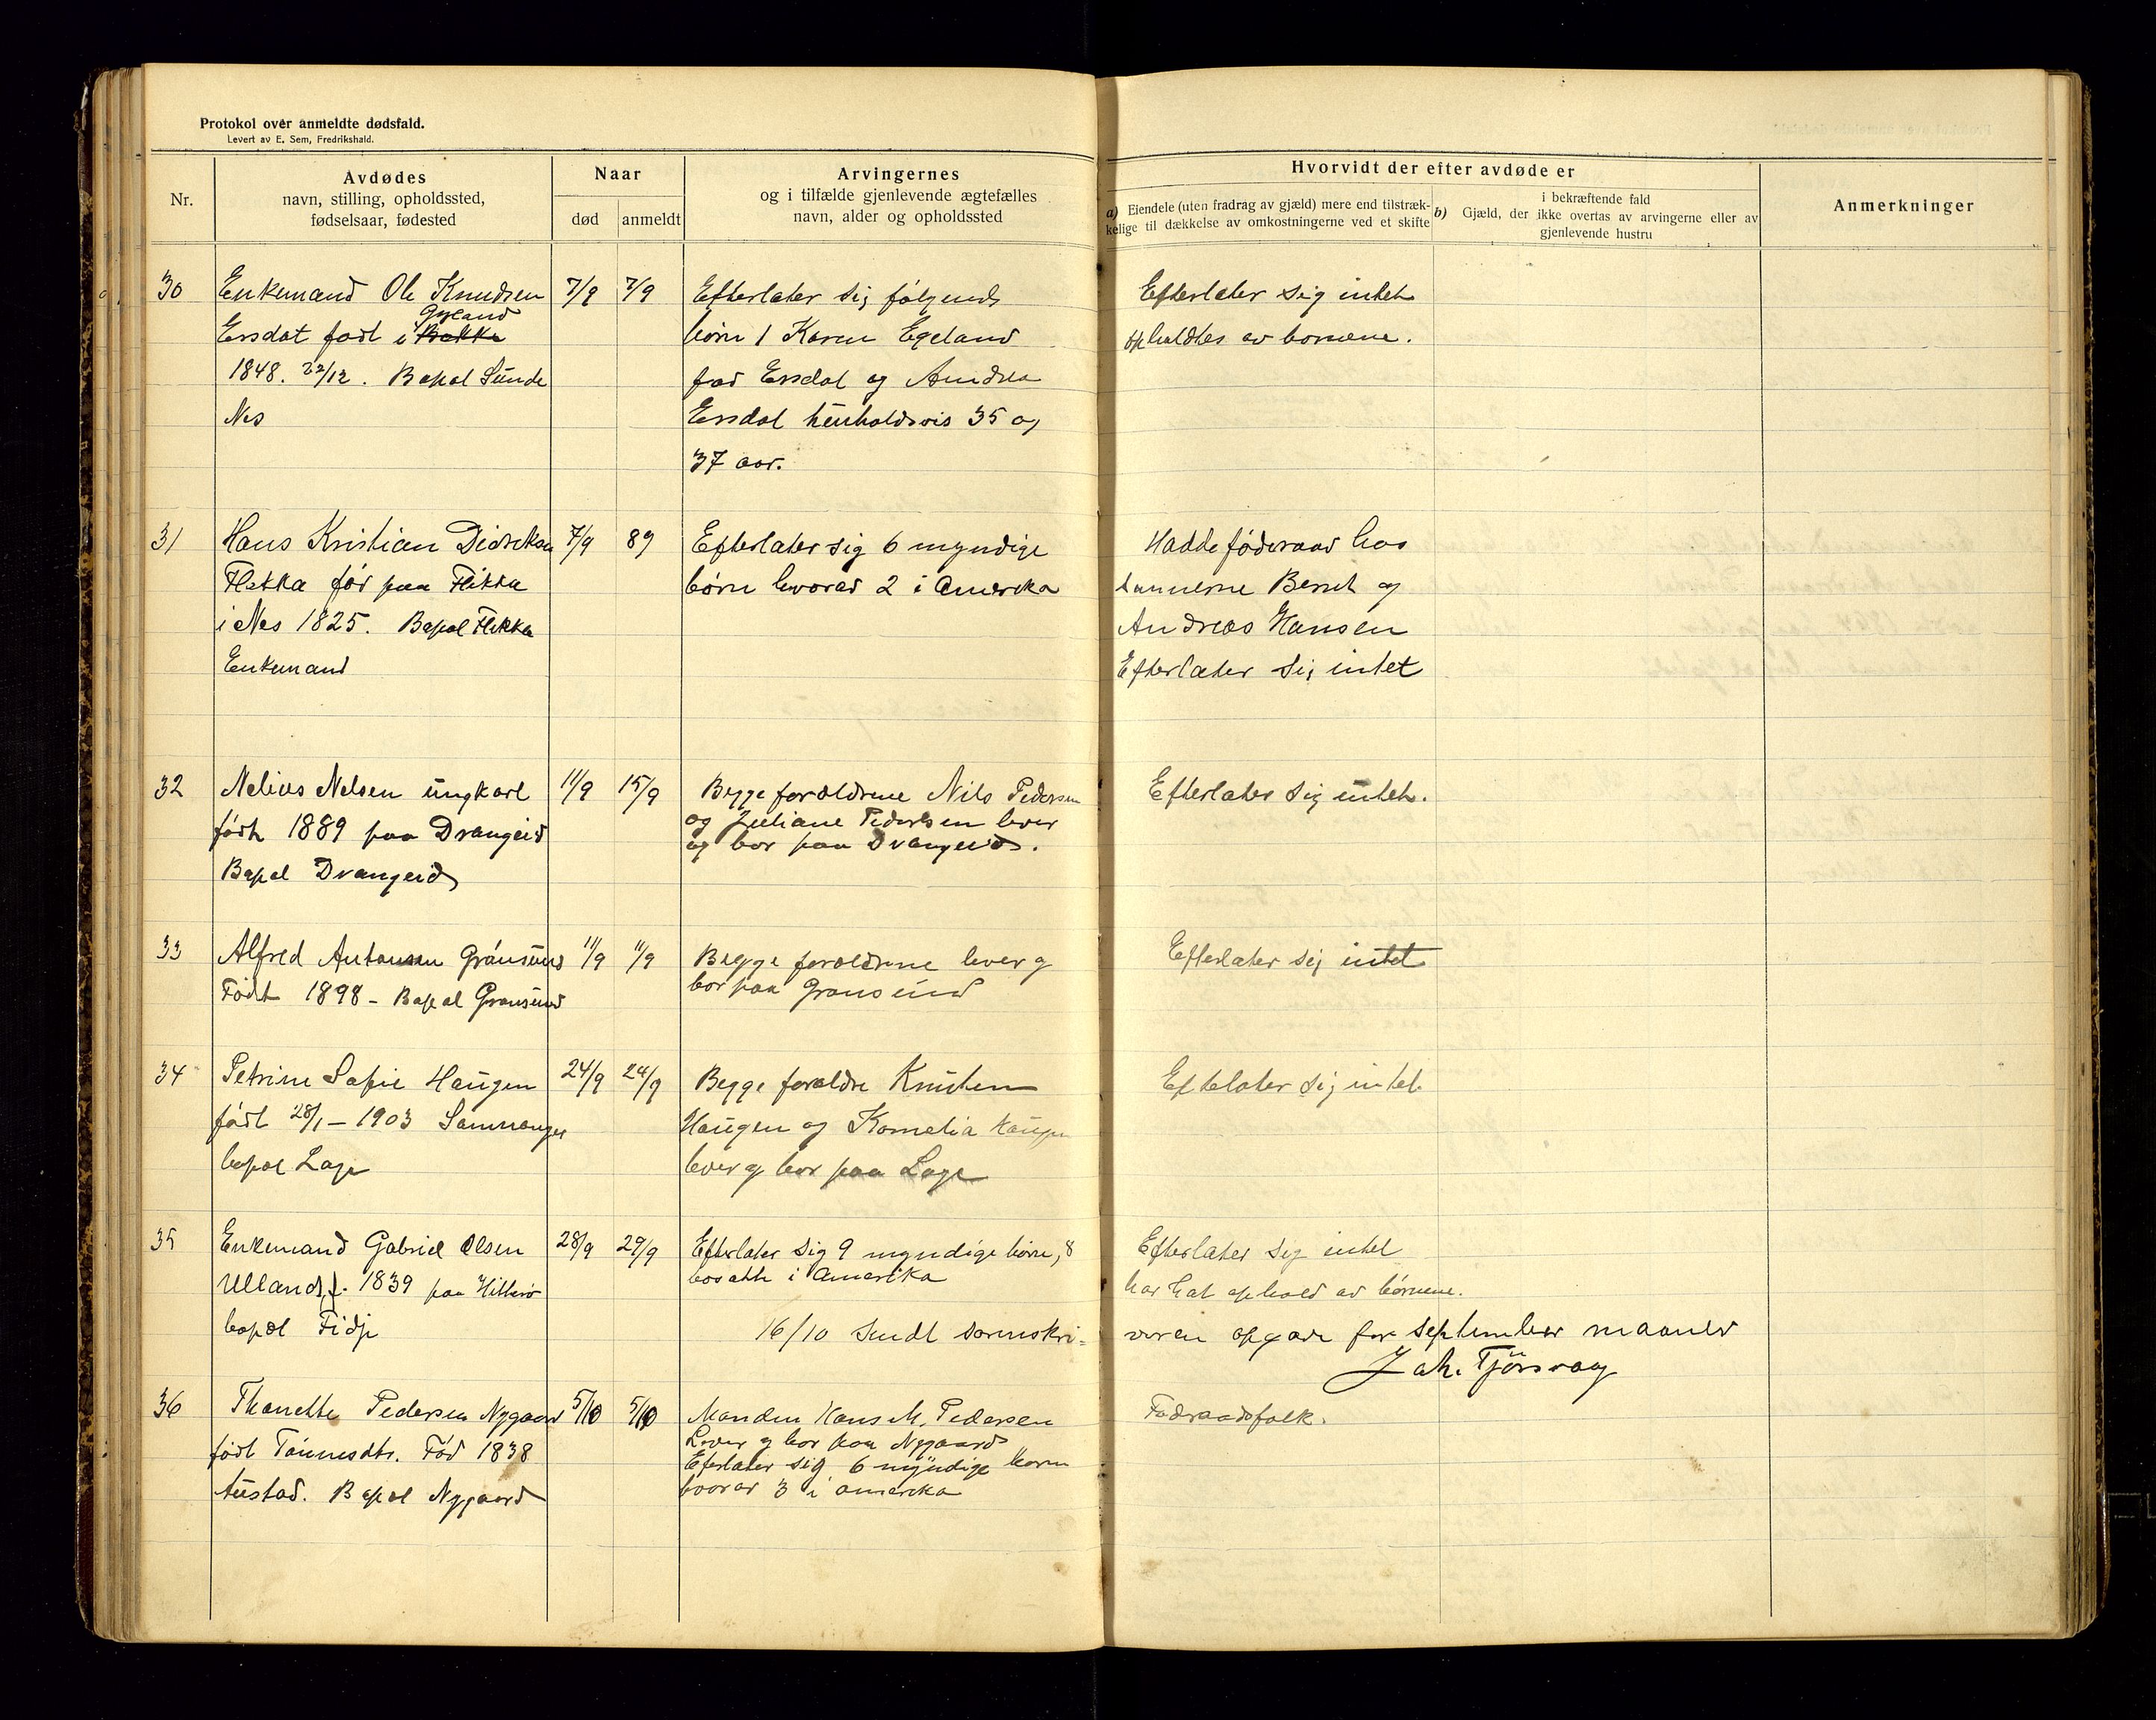 Protokol over anmeldte dødsfald.
Levert av E. Sem, Fredrikshald.
Nr.
Avdødes
navn, stilling, opholdssted,
fødselsaar, fødested
Naar
død
anmeldt
Arvingernes
og i tilfælde gjenlevende ægtefælles
navn, alder og opholdssted
Hvorvidt der efter avdøde er
a) Eiendele (uten fradrag av gjæld) mere end tilstræk-
kelige til dækkelse av omkostningerne ved et skifte
b)
i bekræftende fald
Gjæld, der ikke overtas av arvingerne eller av
gjenlevende hustru
Anmerkninger
30
Enkemand Ole Knudsen
Gyland
Ersdal født i Bakke
1848. 22/12. Bopæl Sunde
Nes
7/9
7/9
Efterlater sig følgende
børn 1 Karen Egeland
fød Ersdal og Andrea
Ersdal henholdsvis 35 og
37 aar.
Efterlater sig intet
opholdtes av børnene.
31
Hans Kristian Didriksen
Flikka før paa Flikka
i Nes 1825. Bopæl Flikka
Enkemand
7/9
89
Efterlater sig 6 myndige
børn hvorav 2 i Amerika
Hadde føderaad hos
sønnerne Bernt og
Andreas Hansen
Efterlater sig intet
32
Nelius Nelsen ungkarl
født 1889 paa Drangeid
Bopæl Drangeid
11/9
15/9
Begge forældrene Nils Pedersen
og Juliane Pedersen lever
og bor paa Drangeid.
Efterlater sig intet.
33
Alfred Antonsen Grønsund
Født 1898 - Bopæl Grønsund
11/9
11/9
Begge forældrene lever og
bor paa Grønsund
Efterlater sig intet
34
Petrine Sofie Haugen
født 28/1 - 1903 Samnanger
bopæl Loge
24/9
24/9
Begge forældre Knut
Haugen og Kornelia Haugen
lever og bor paa Loge
Efterlater sig intet
35
Enkemand Gabriel Olsen
Ulland, f. 1839 paa Hitterø
bopæl Fidje
28/9
29/9
Efterlater sig 9 myndige børn, 8
bosatte i Amerika
Efterlater sig intet
har hat ophold av børnene.
16/10 Sendt sorenskri-
veren opgave for september maaned
Joh. Tjørsvaag
36
Thonette Pedersen Nygaard
født Tønnesdtr. Fød 1838
Austad. Bopæl Nygaard
5/10
5/10
Manden Hans M. Pedersen
Lever og bor paa Nygaard
Efterlater sig 6 myndige børn
hvorav 3 i amerika
Føderaadsfolk.